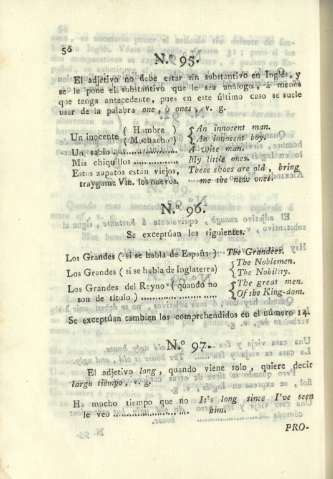 56
N.º 95.
El adjetivo no debe estar sin substantivo en Inglés, y
se le pone el substantivo que le sea análogo, á menos
que tenga antecedente, pues en este último caso se suele
usar de la palabra one, ó ones, v. g.
Un inocente ( Hombre ) { An innocent man.
( Muchacho ) { An innocent boy.
Un sabio .................. A wise man.
Mis chiquillos ............... My little ones.
Estos zapatos están viejos, These shoes are old, bring
traygame Vm. los nuevos. me the new ones.
N.º 96.
Se exceptúan los siguientes.
Los Grandes ( si se habla de España ) -- The Grandees.
Los Grandes ( si se habla de Inglaterra) { The Noblemen.
{ The Nobility.
Los Grandes del Reyno ( quando no { The great men.
son de titulo ) .................. { Of the King-dom.
Se exceptúan tambien los comprehendidos en el número 14.
N.º 97.
El adjetivo long, quando viene solo, quiere decir
largo tiempo, v. g.
Ha mucho tiempo que no It's long since I've seen
le veo ..................... him.
PRO-